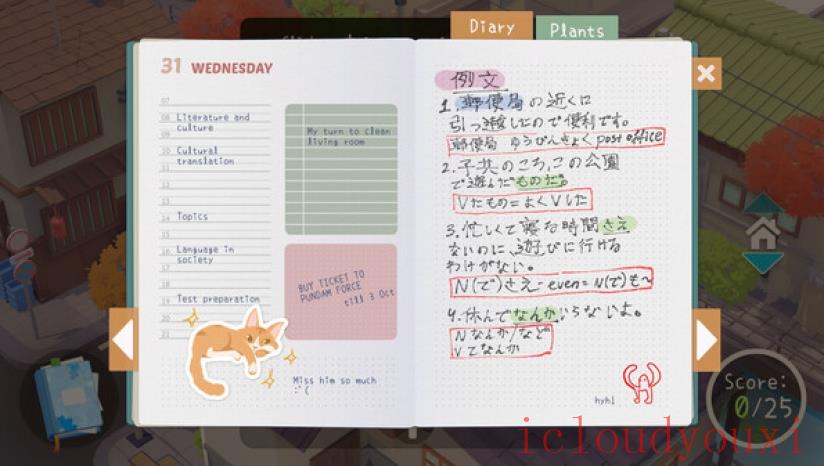 Diary
Plants
31 WEDNESDAY
07
08 Literature and
09 culture
10 Cultural
11 translation
12
13
14 Topics
15
16 Language in
society
19 Test preparation
20
21
My turn to clean
living room
BUY TICKET TO
PUNDAM FORCE
till 3 Oct
Miss him so much
:'(
例文
1.郵便局の近くに
引っ越したので便利です。
郵便局 ゆうびんきょく post office
2.子共のころ、この公園
で遊んだものだ。
Vたもの=よくVした
3.忙しくて寝る時間さえ
ないのに、遊びに行ける
わけがない。
N(で)さえ-even=N(で)も~
4.休んでなんかいらないよ。
Nなんか/など
Vてなんか
hyh!
Score:
0/25
icloudyouxi